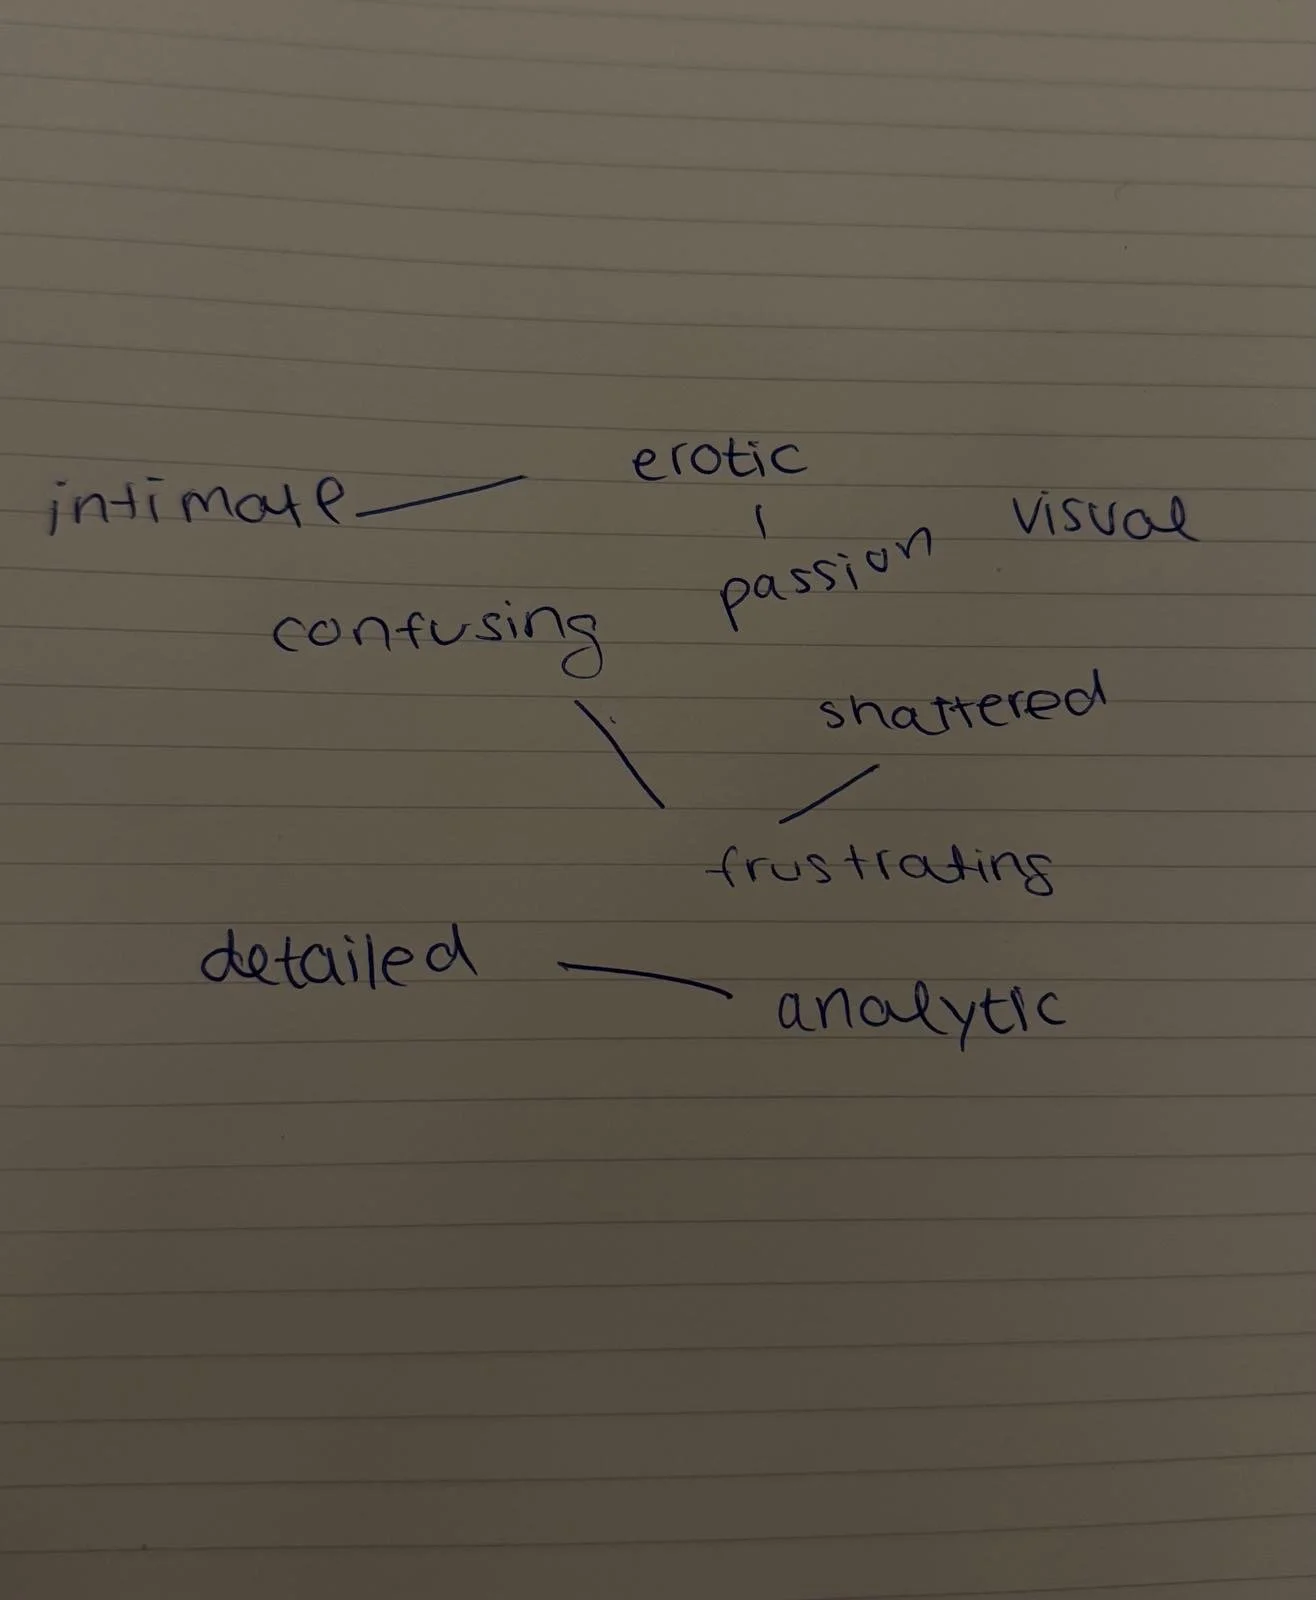 erotic
intimate
visual
passion
confusing
shattered
frustrating
detailed
analytic